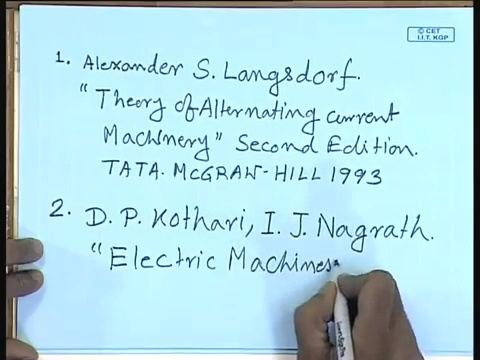 © CET
I.I.T. KGP
1. Alexander S. Langsdorf.
"Theory of Alternating current
Machinery" Second Edition.
TATA. McGRAW-HILL 1993
2. D. P. Kothari, I. J. Nagrath.
"Electric Machines